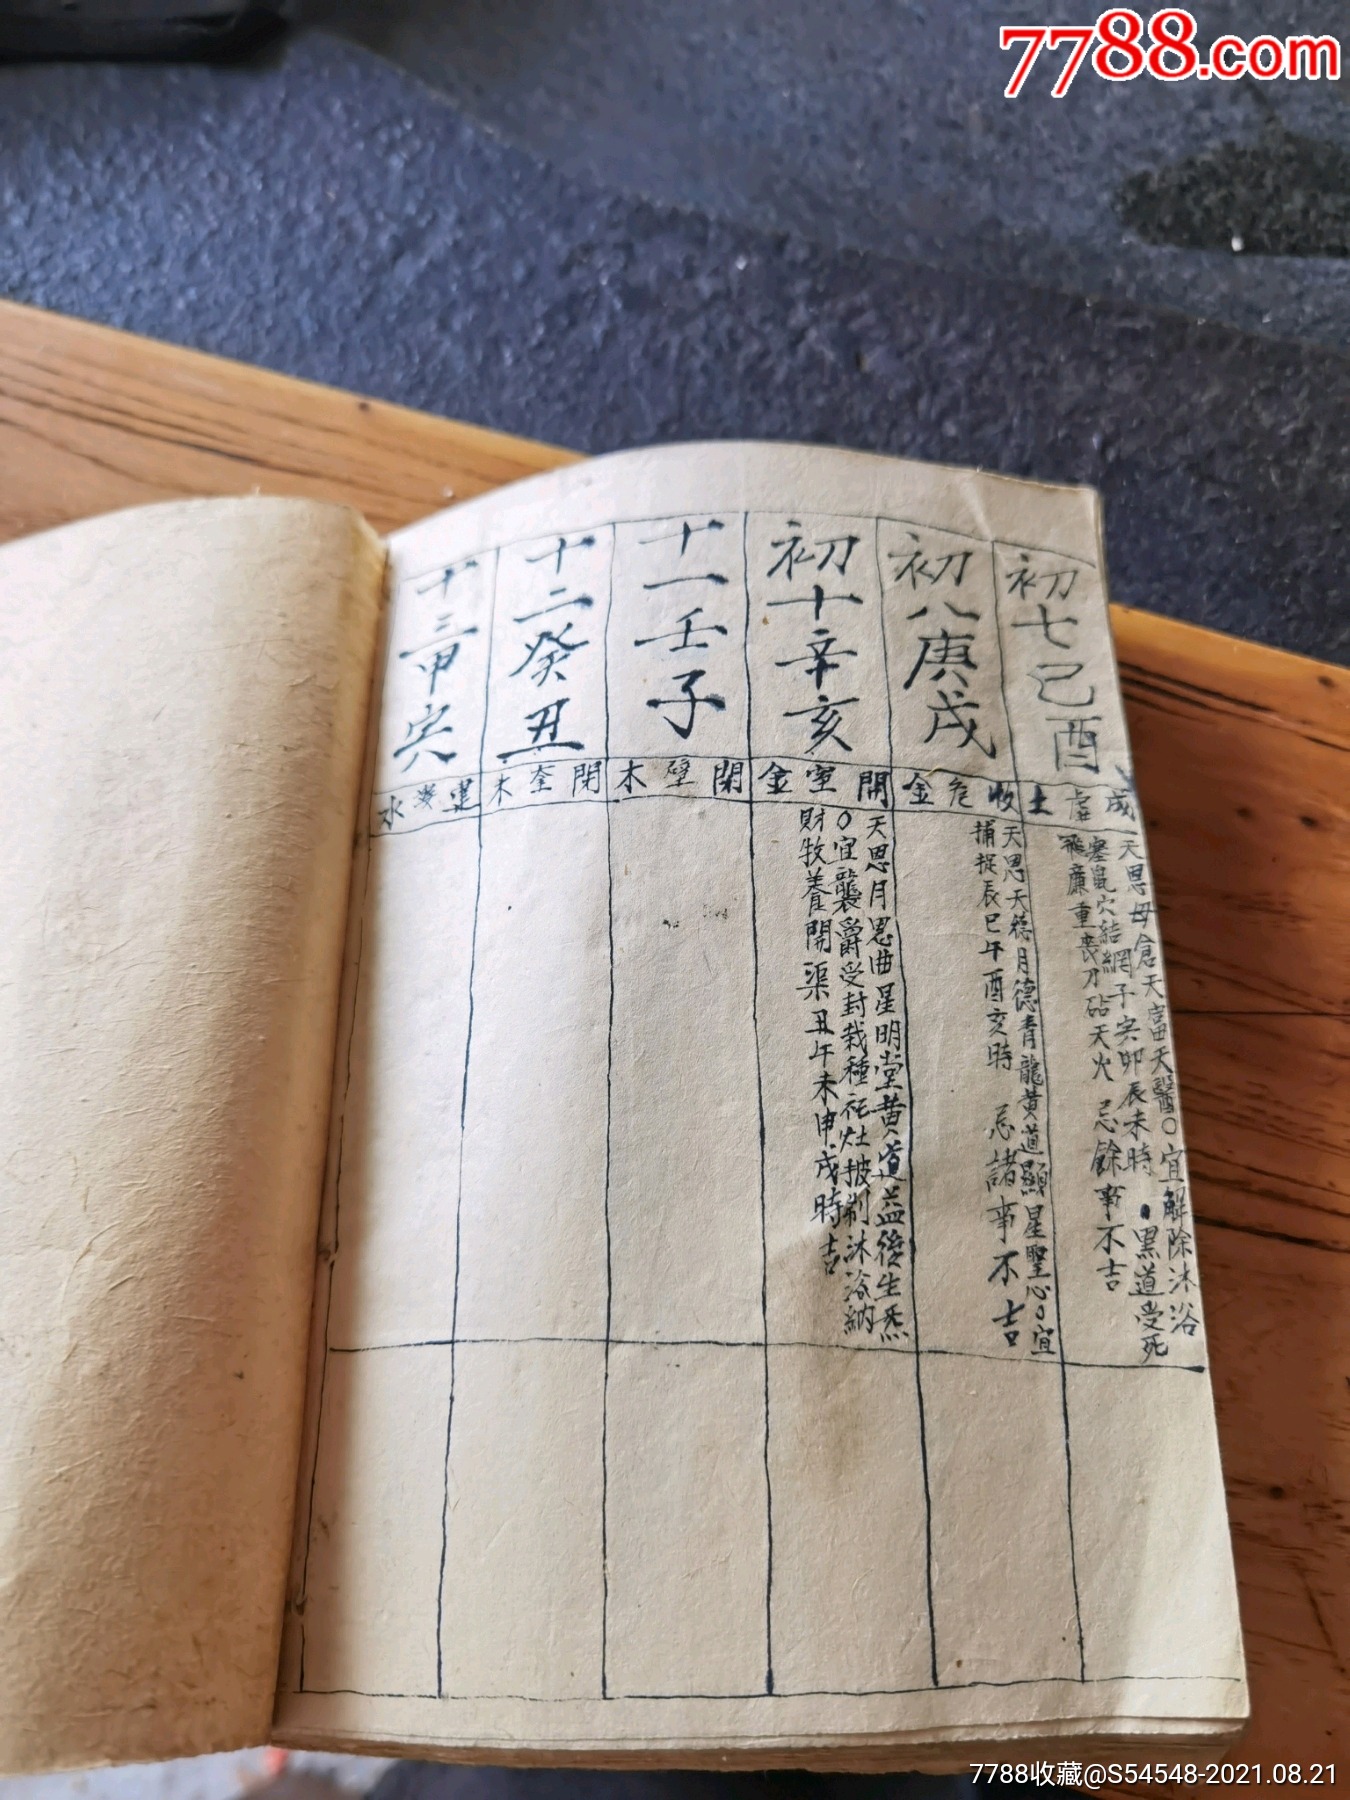 7788.com
初七己酉
成虛土
天恩母倉天富天醫〇宜解除沐浴
塞鼠穴結網子寅卯辰未時 黑道受死
飛廉重喪刀砧天火 忌餘事不吉
初八庚戌
收危金
天恩天德月德青龍黃道顯星聖心〇宜
捕捉辰巳午酉亥時 忌諸事不吉
初十辛亥
開室金
天恩月恩曲星明堂黃道益後生炁
〇宜襲爵受封栽種祀灶披剃沐浴納
財牧養開渠丑午未申戌時吉
十一壬子
閉壁木
十二癸丑
閉奎木
十三甲寅
建婁水
7788收藏@S54548-2021.08.21